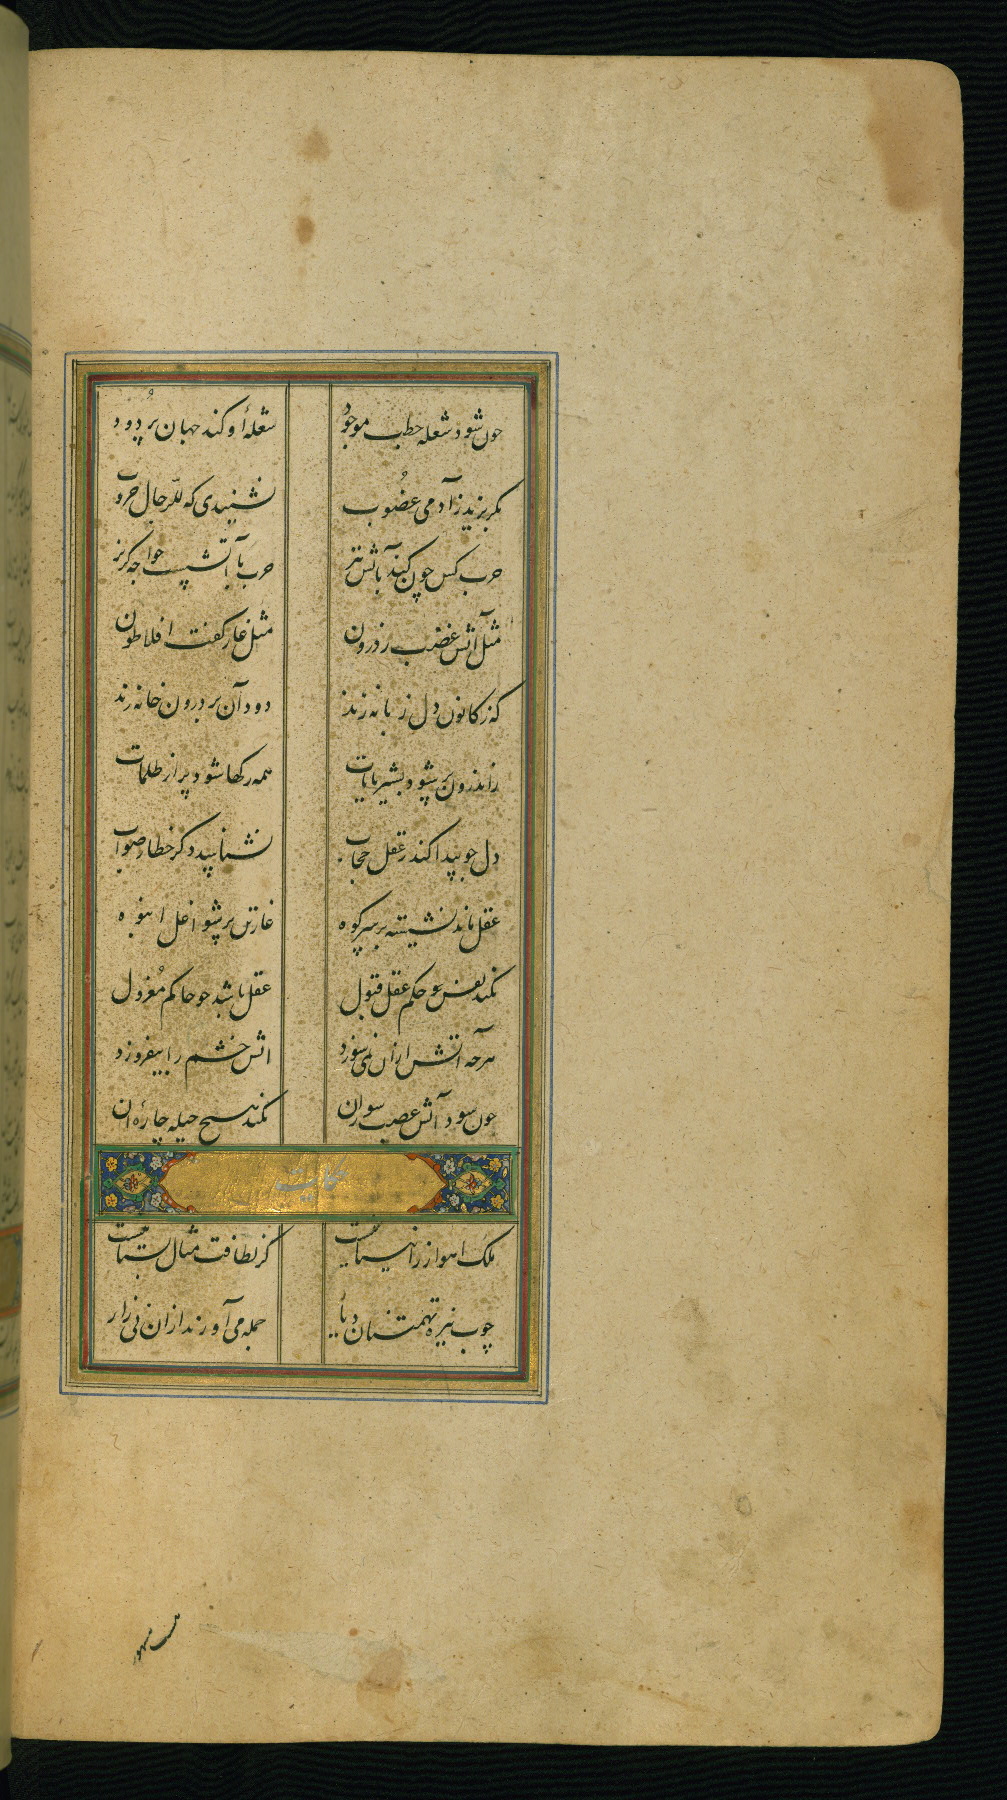 چون شود شعله حطب موجود شعلهٔ او کند جهان پُر دود
بگریزید ز آدمی غضوب نشنیدی که للرجال حروب
حرب کس چون کند بآتش تیز حرب با آتشست خواجه گریز
مثل آتش غضب ز درون مثل غار گفت افلاطون
که ز کانون دل زبانه زند دود آن بر درون خانه زند
ز اندرون بر شود بشیریانات همه رگها شود پر از ظلمات
دل چو پیدا کند ز عقل حجاب نشناسد دگر خطا ز صواب
عقل ماند نشسته بر سر کوه غارتش بر شود انبوه
نکند نفس تو حکم عقل قبول عقل باشد چو حاکم معزول
هرچه آتش از آن نمی سوزد آتش خشم را بیفروزد
چون شود آتش غضب سوزان نکند هیچ حیله چارهٔ آن
حکایت
ملک اهواز را نیستانیست کز لطافت مثال بستانیست
چوب نیزه تهمتنان دیار جمله می آورند از آن نی زار